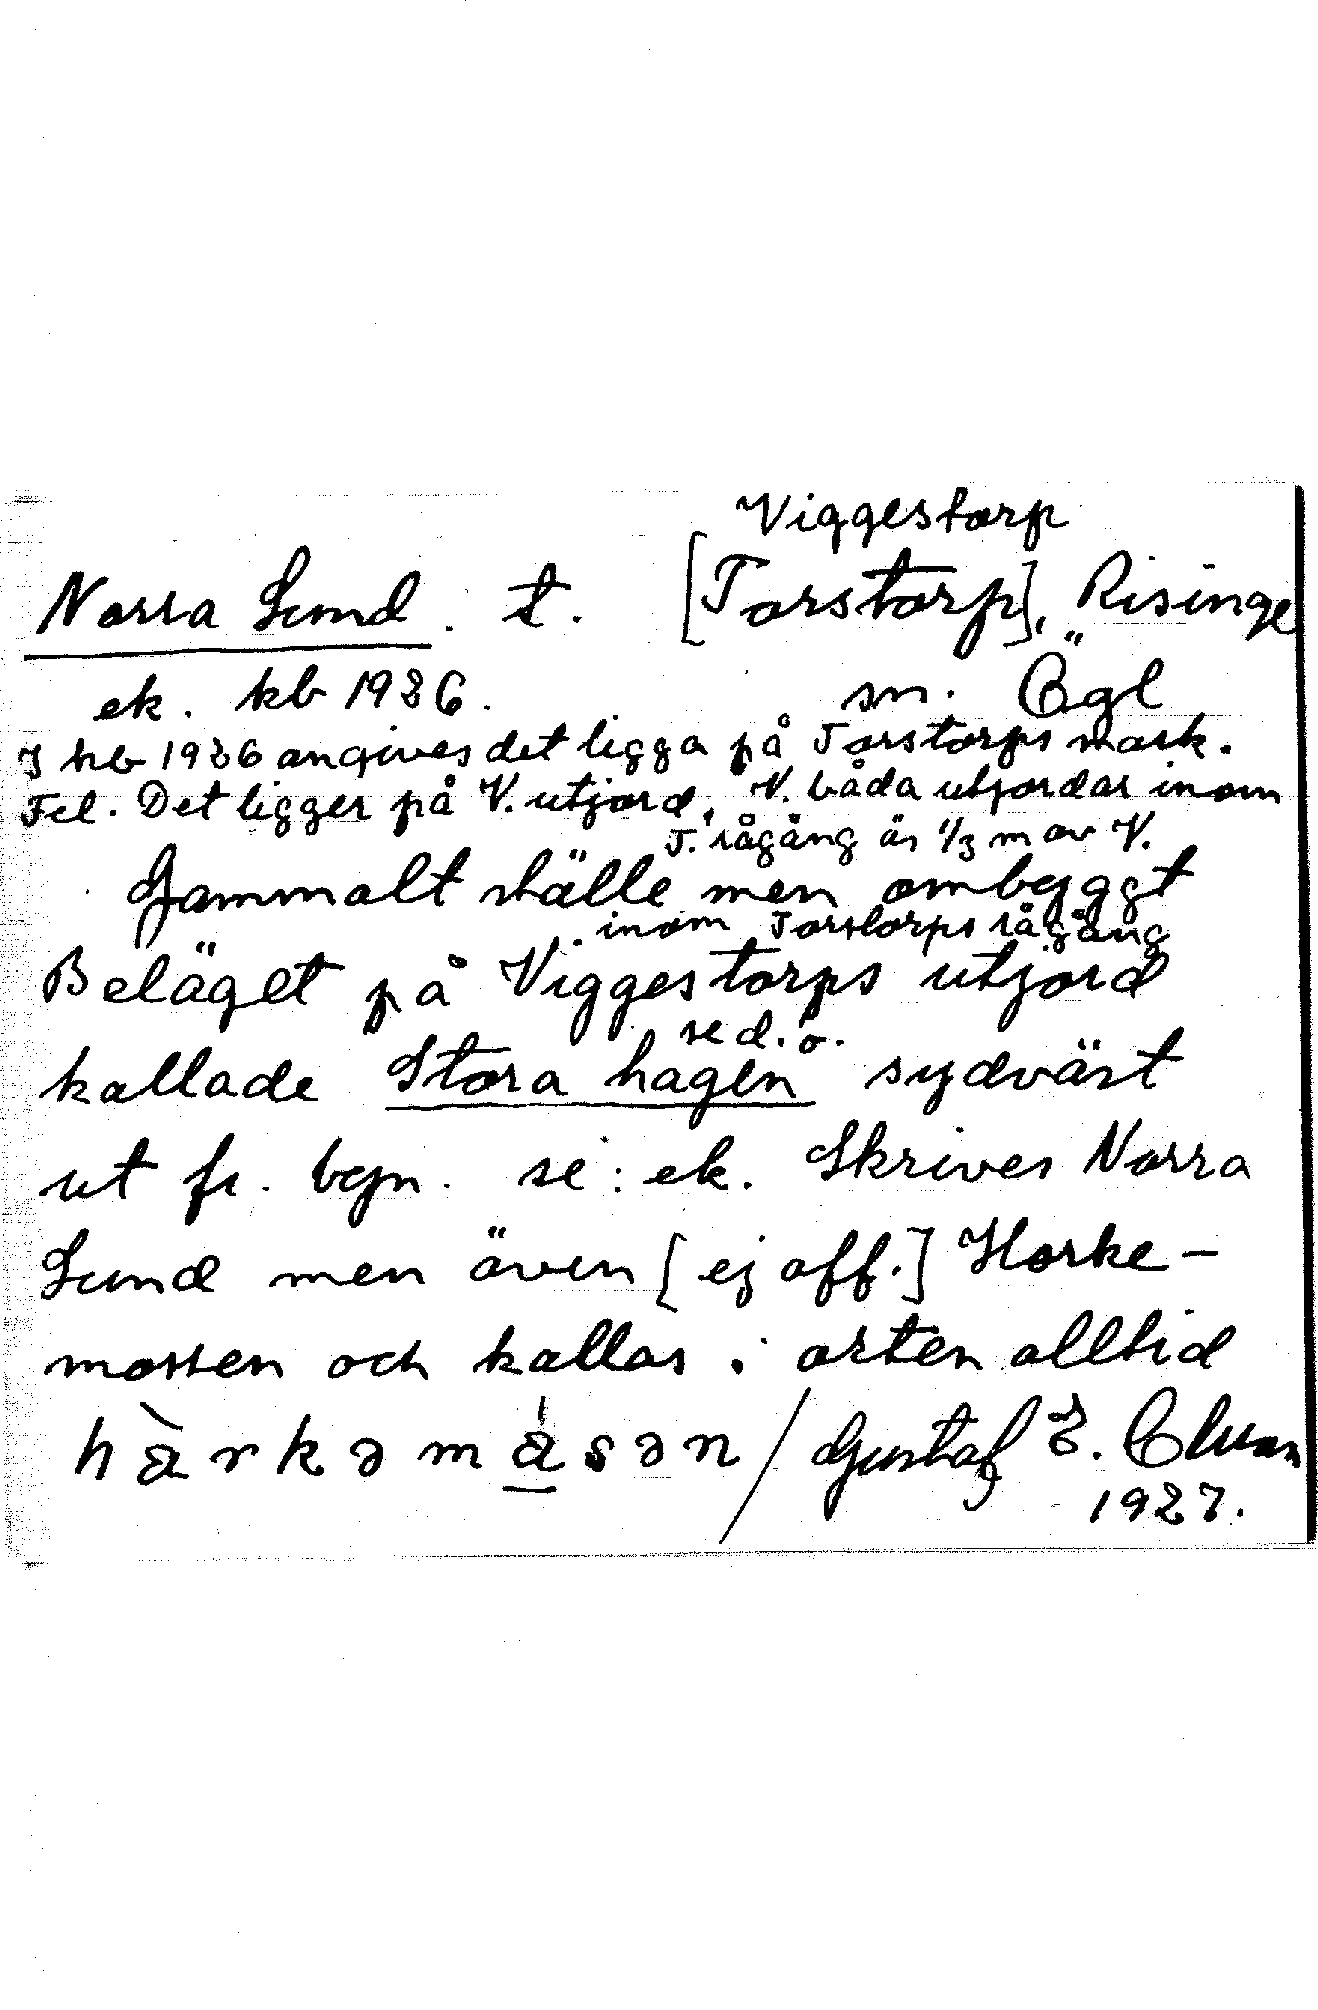 Viggestorp
Norra Lund. t. [Torstorp], Risinge
ek. kb 1926. sn. Ögl
I kb 1926 angives det ligga på Torstorps mark.
Fel. Det ligger på V. utjord, V. båda utjordar inom
T. rågång är 1/3 m av V.
Gammalt ställe men ombyggt
inom Torstorps rågång
Beläget på Viggestorps utjord
se d. o.
kallade Stora hagen sydväst
ut fr. byn. se: ek. Skrives Norra
Lund men även [ej off.] Horke-
mossen och kallas i orten alltid
hàrkəmåsən / Gustaf E.
1927.